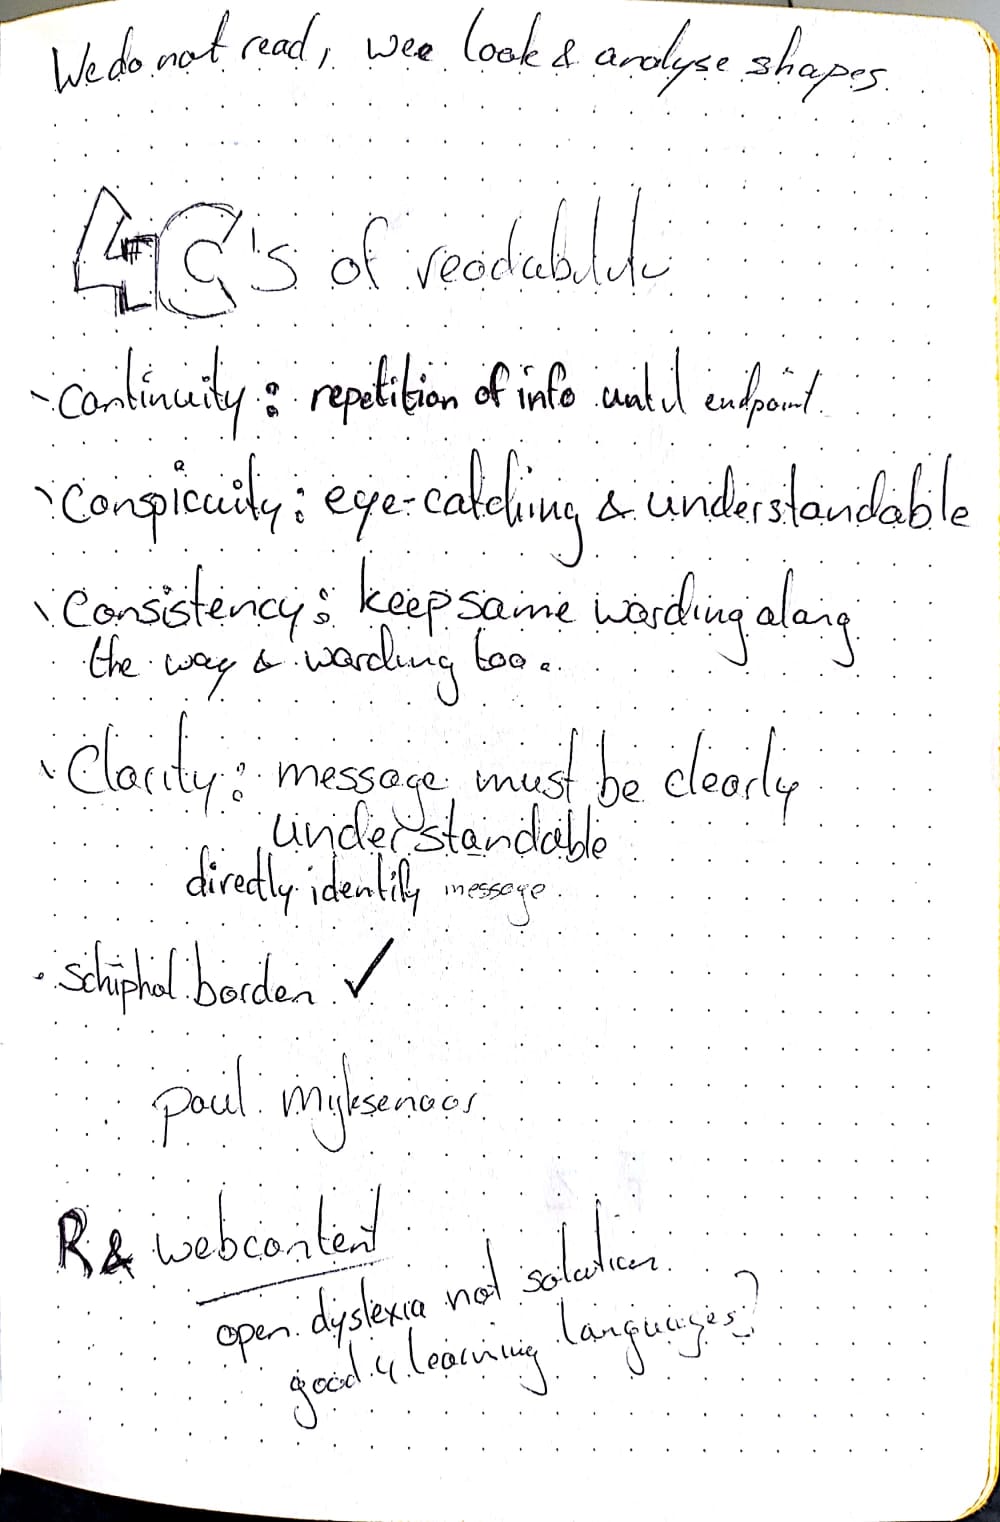 We do not read, wee look & analyse shapes.
4C's of readability
- Continuity: repetition of info until endpoint.
- Conspicuity: eye-catching & understandable
- Consistency: keep same wording along
the way & wording too.
- Clarity: message must be clearly
understandable
directly identify message.
• Schiphol borden ✓
paul mijksenaar
R & webcontent
open dyslexia not solution
good 4 learning languages?